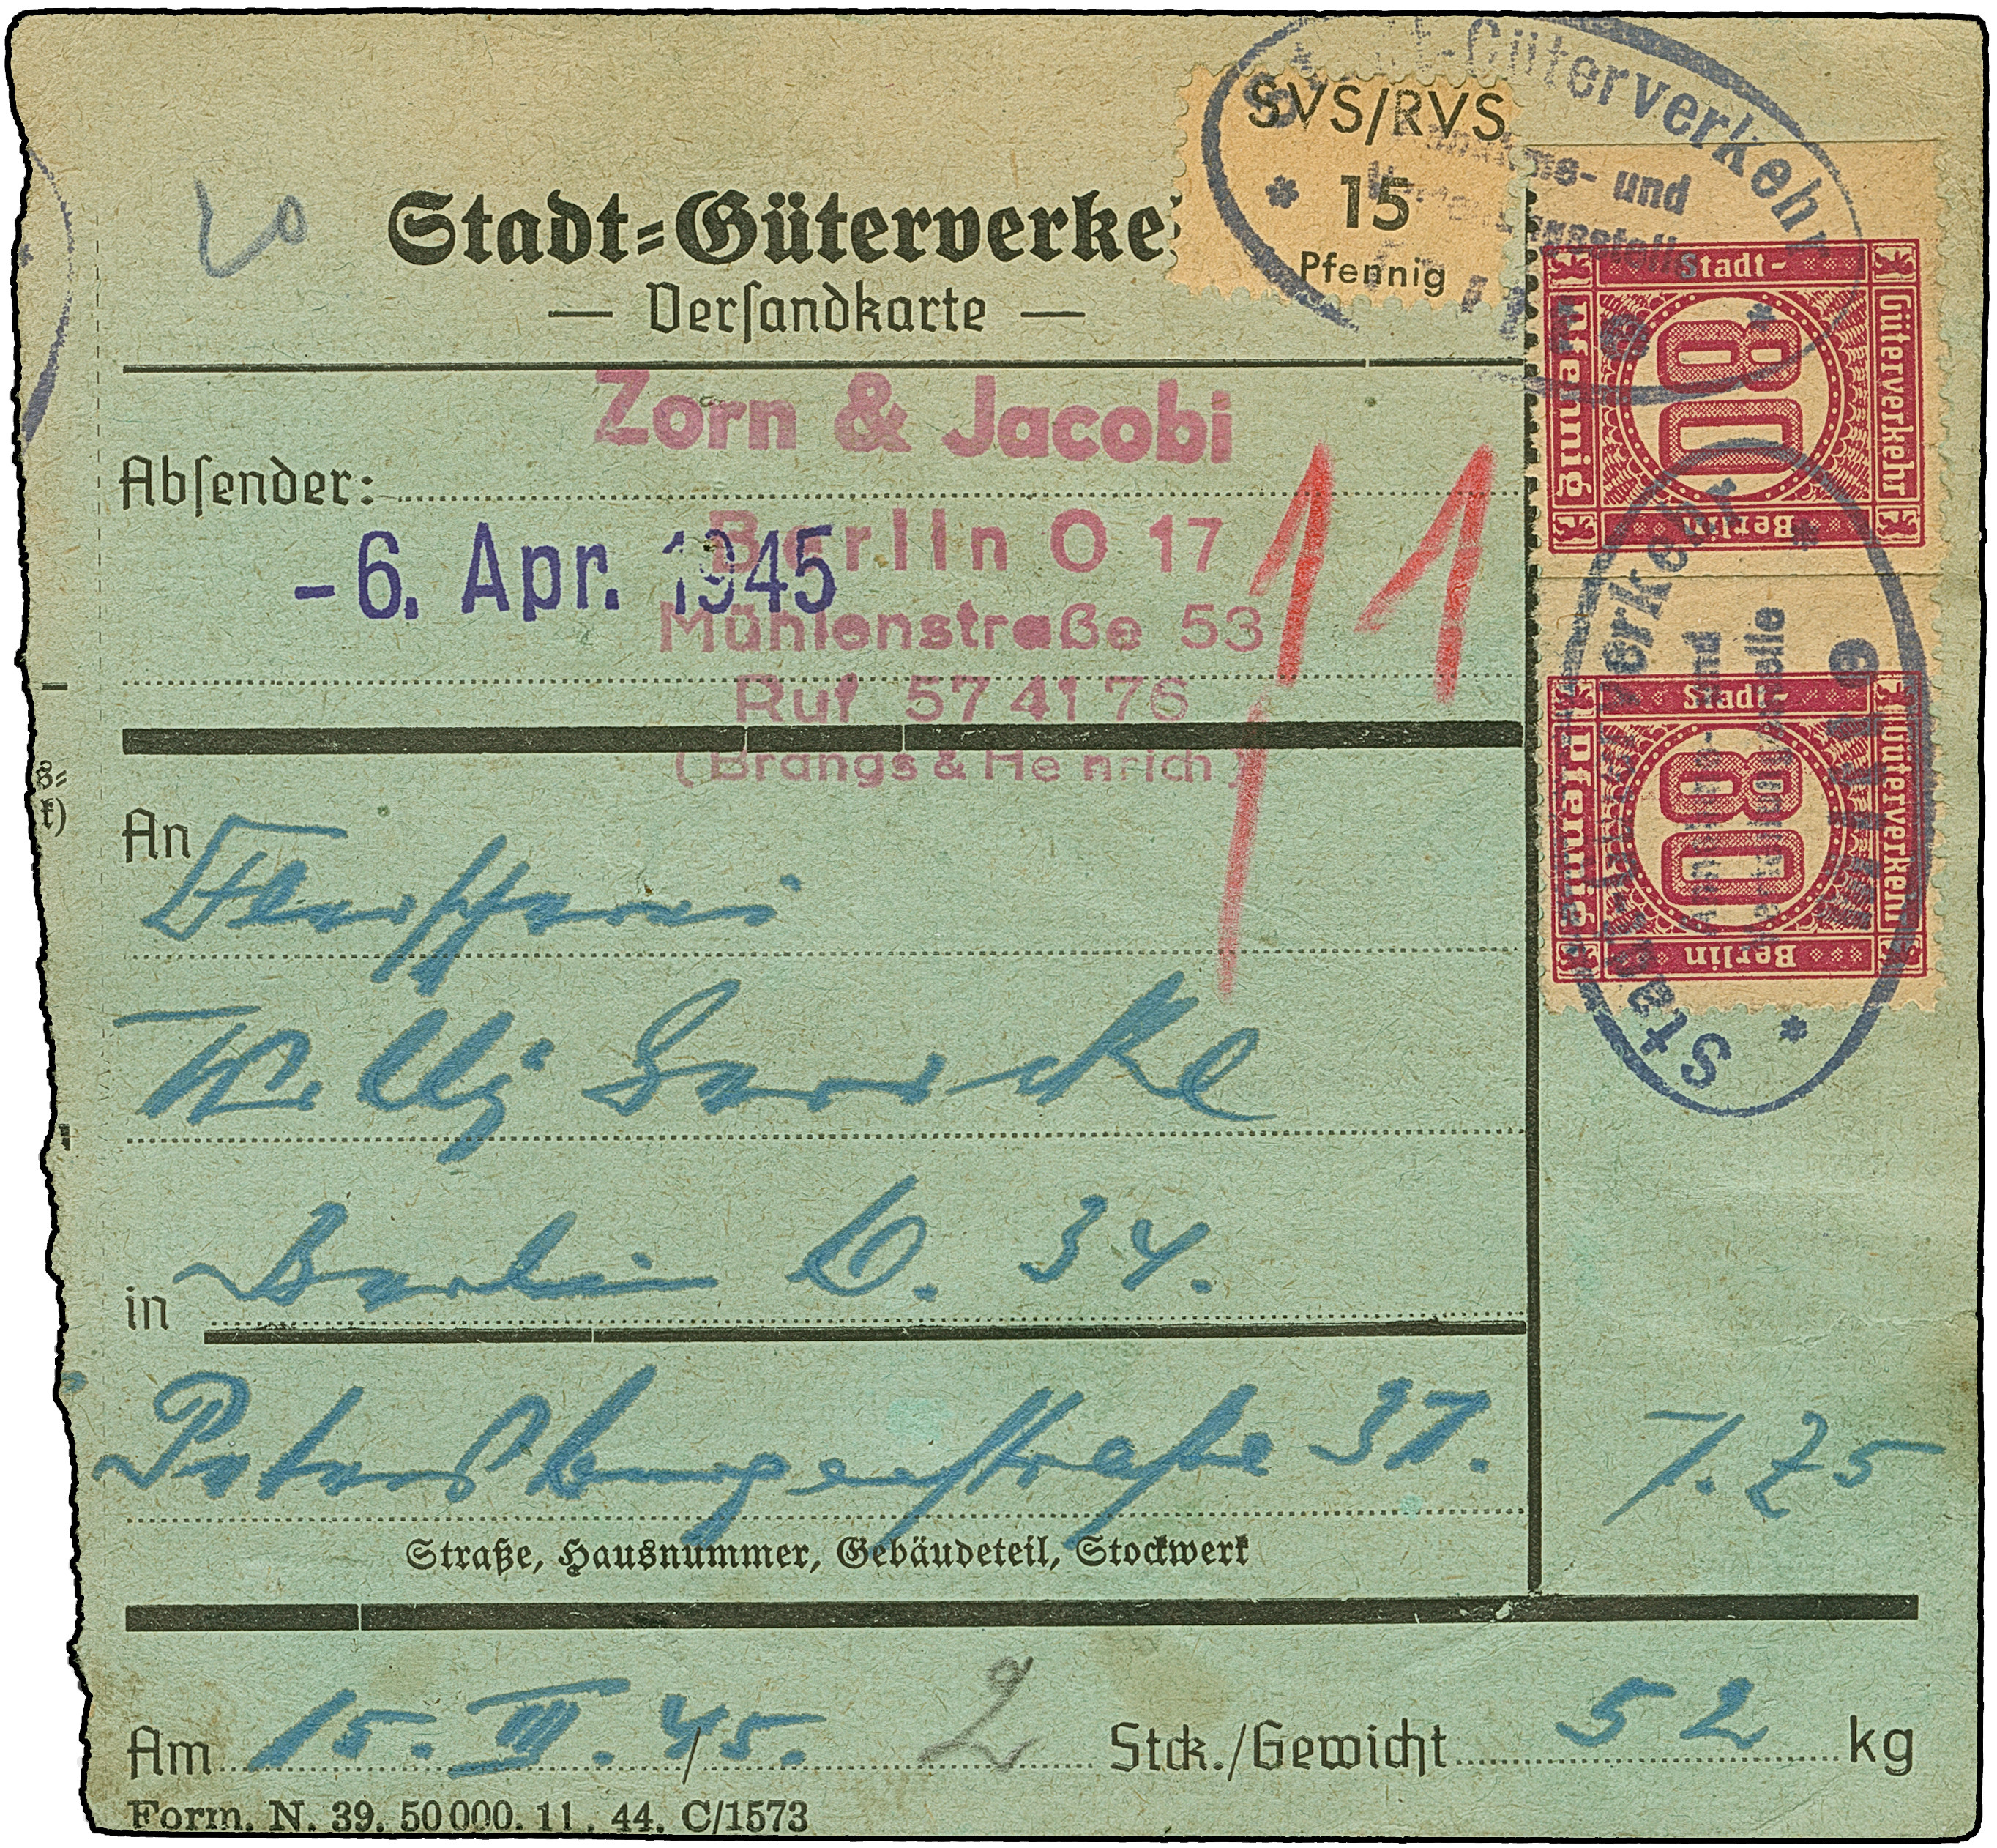 Stadt-Güterverkehr
SVS/RVS
15
Pfennig
20
Stadt-Güterverke
— Versandkarte —
Stadt-
Güterverkehr
80
Pfennig
Berlin
Zorn & Jacobi
Absender:
Berlin O 17
-6. Apr. 1945
Mühlenstraße 53
Ruf 57 41 76
(Brangs & Heinrich)
11
Stadt-
Güterverkehr
80
Pfennig
Berlin
An
Willy
in Berlin O. 34.
Petersburgerstraße 37.
7.25
Straße, Hausnummer, Gebäudeteil, Stockwerk
Am 15. III. 45. 2 Stck./Gewicht 52 kg
Form. N. 39. 50000. 11. 44. C/1573